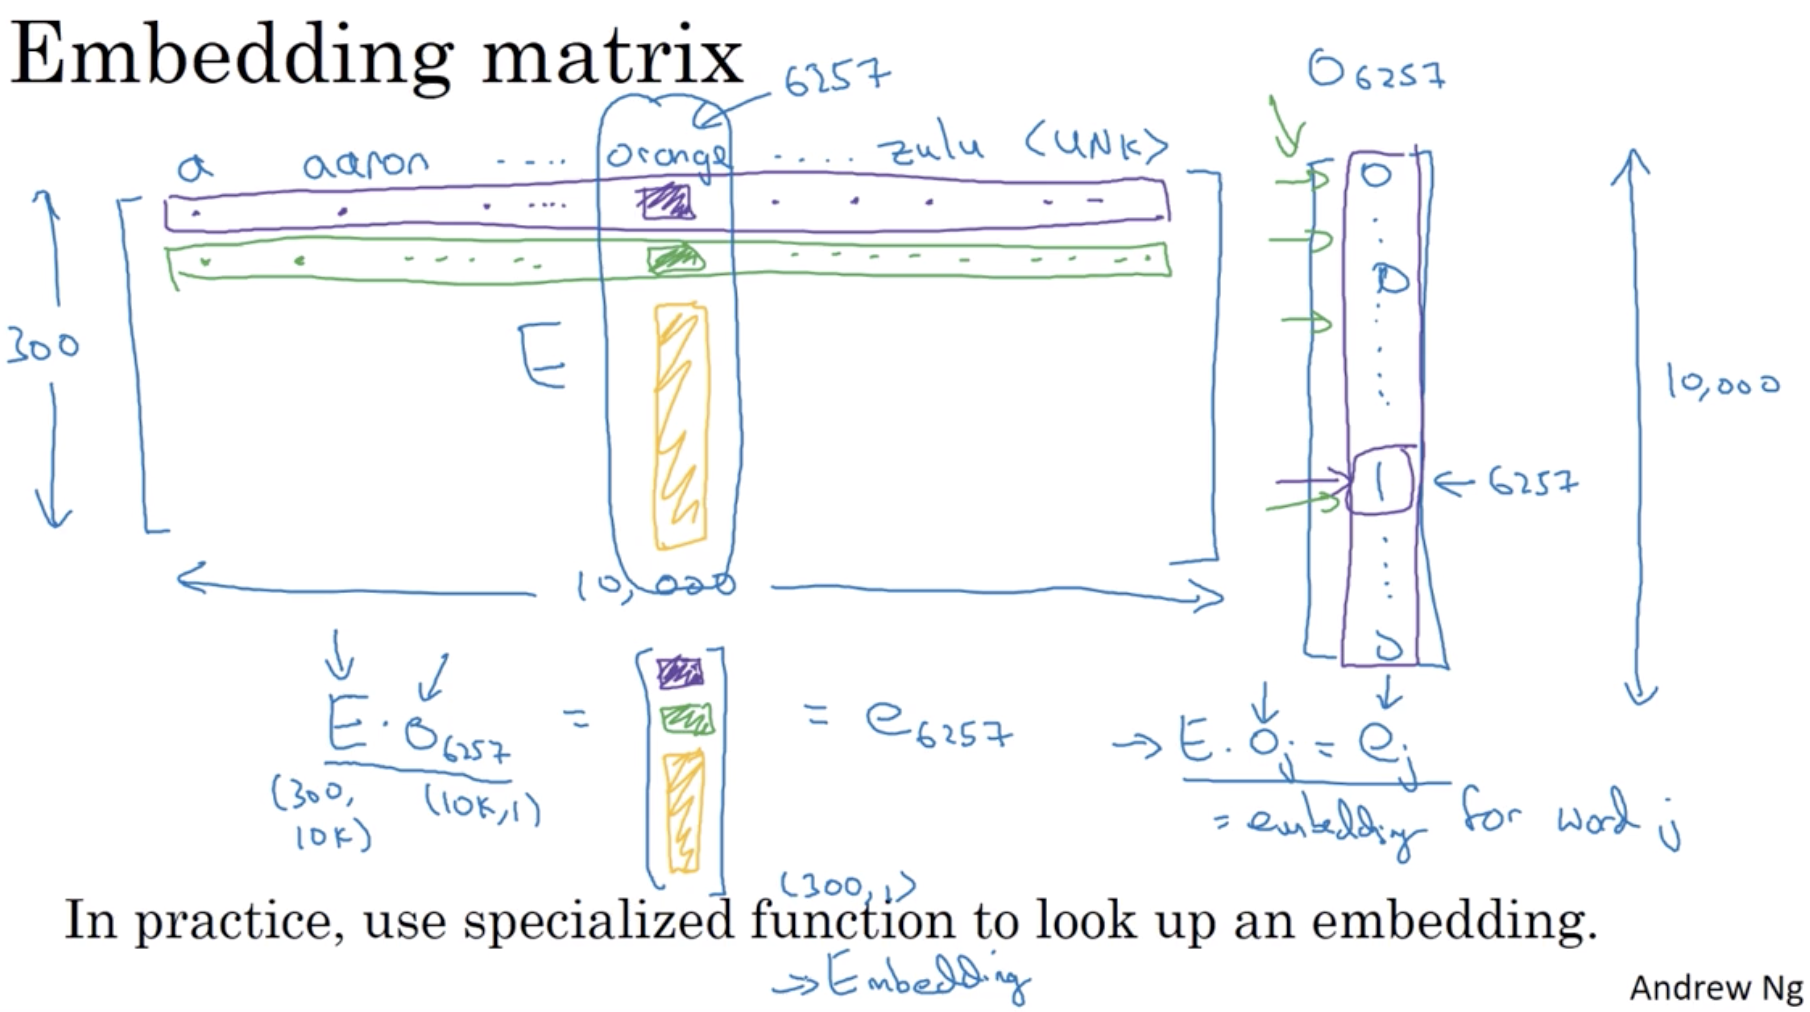 Embedding matrix
6257
O6257
a aaron ..... orange ..... zulu <UNK>
0
.
.
0
300
E
10,000
1 ← 6257
0
10,000
E · O6257 = [ ] = e6257
(300, 10K) (10K, 1)
(300, 1)
→ E · Oj = ej
= embedding for word j
In practice, use specialized function to look up an embedding.
→ Embedding
Andrew Ng